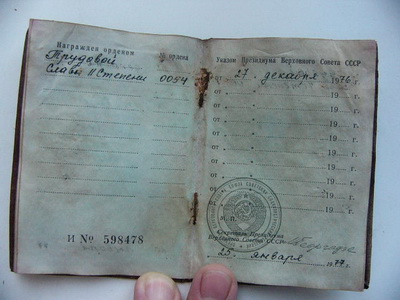 Награжден орденом
№ ордена
Трудовой
Славы II Степени 0054
И № 598478
Указом Президиума Верховного Совета СССР
от 27 декабря 1976 г.
от 19 г.
от 19 г.
от 19 г.
от 19 г.
от 19 г.
от 19 г.
от 19 г.
19 г.
М. П.
Секретарь Президиума
Верховного Совета СССР
25 января 1977 г.